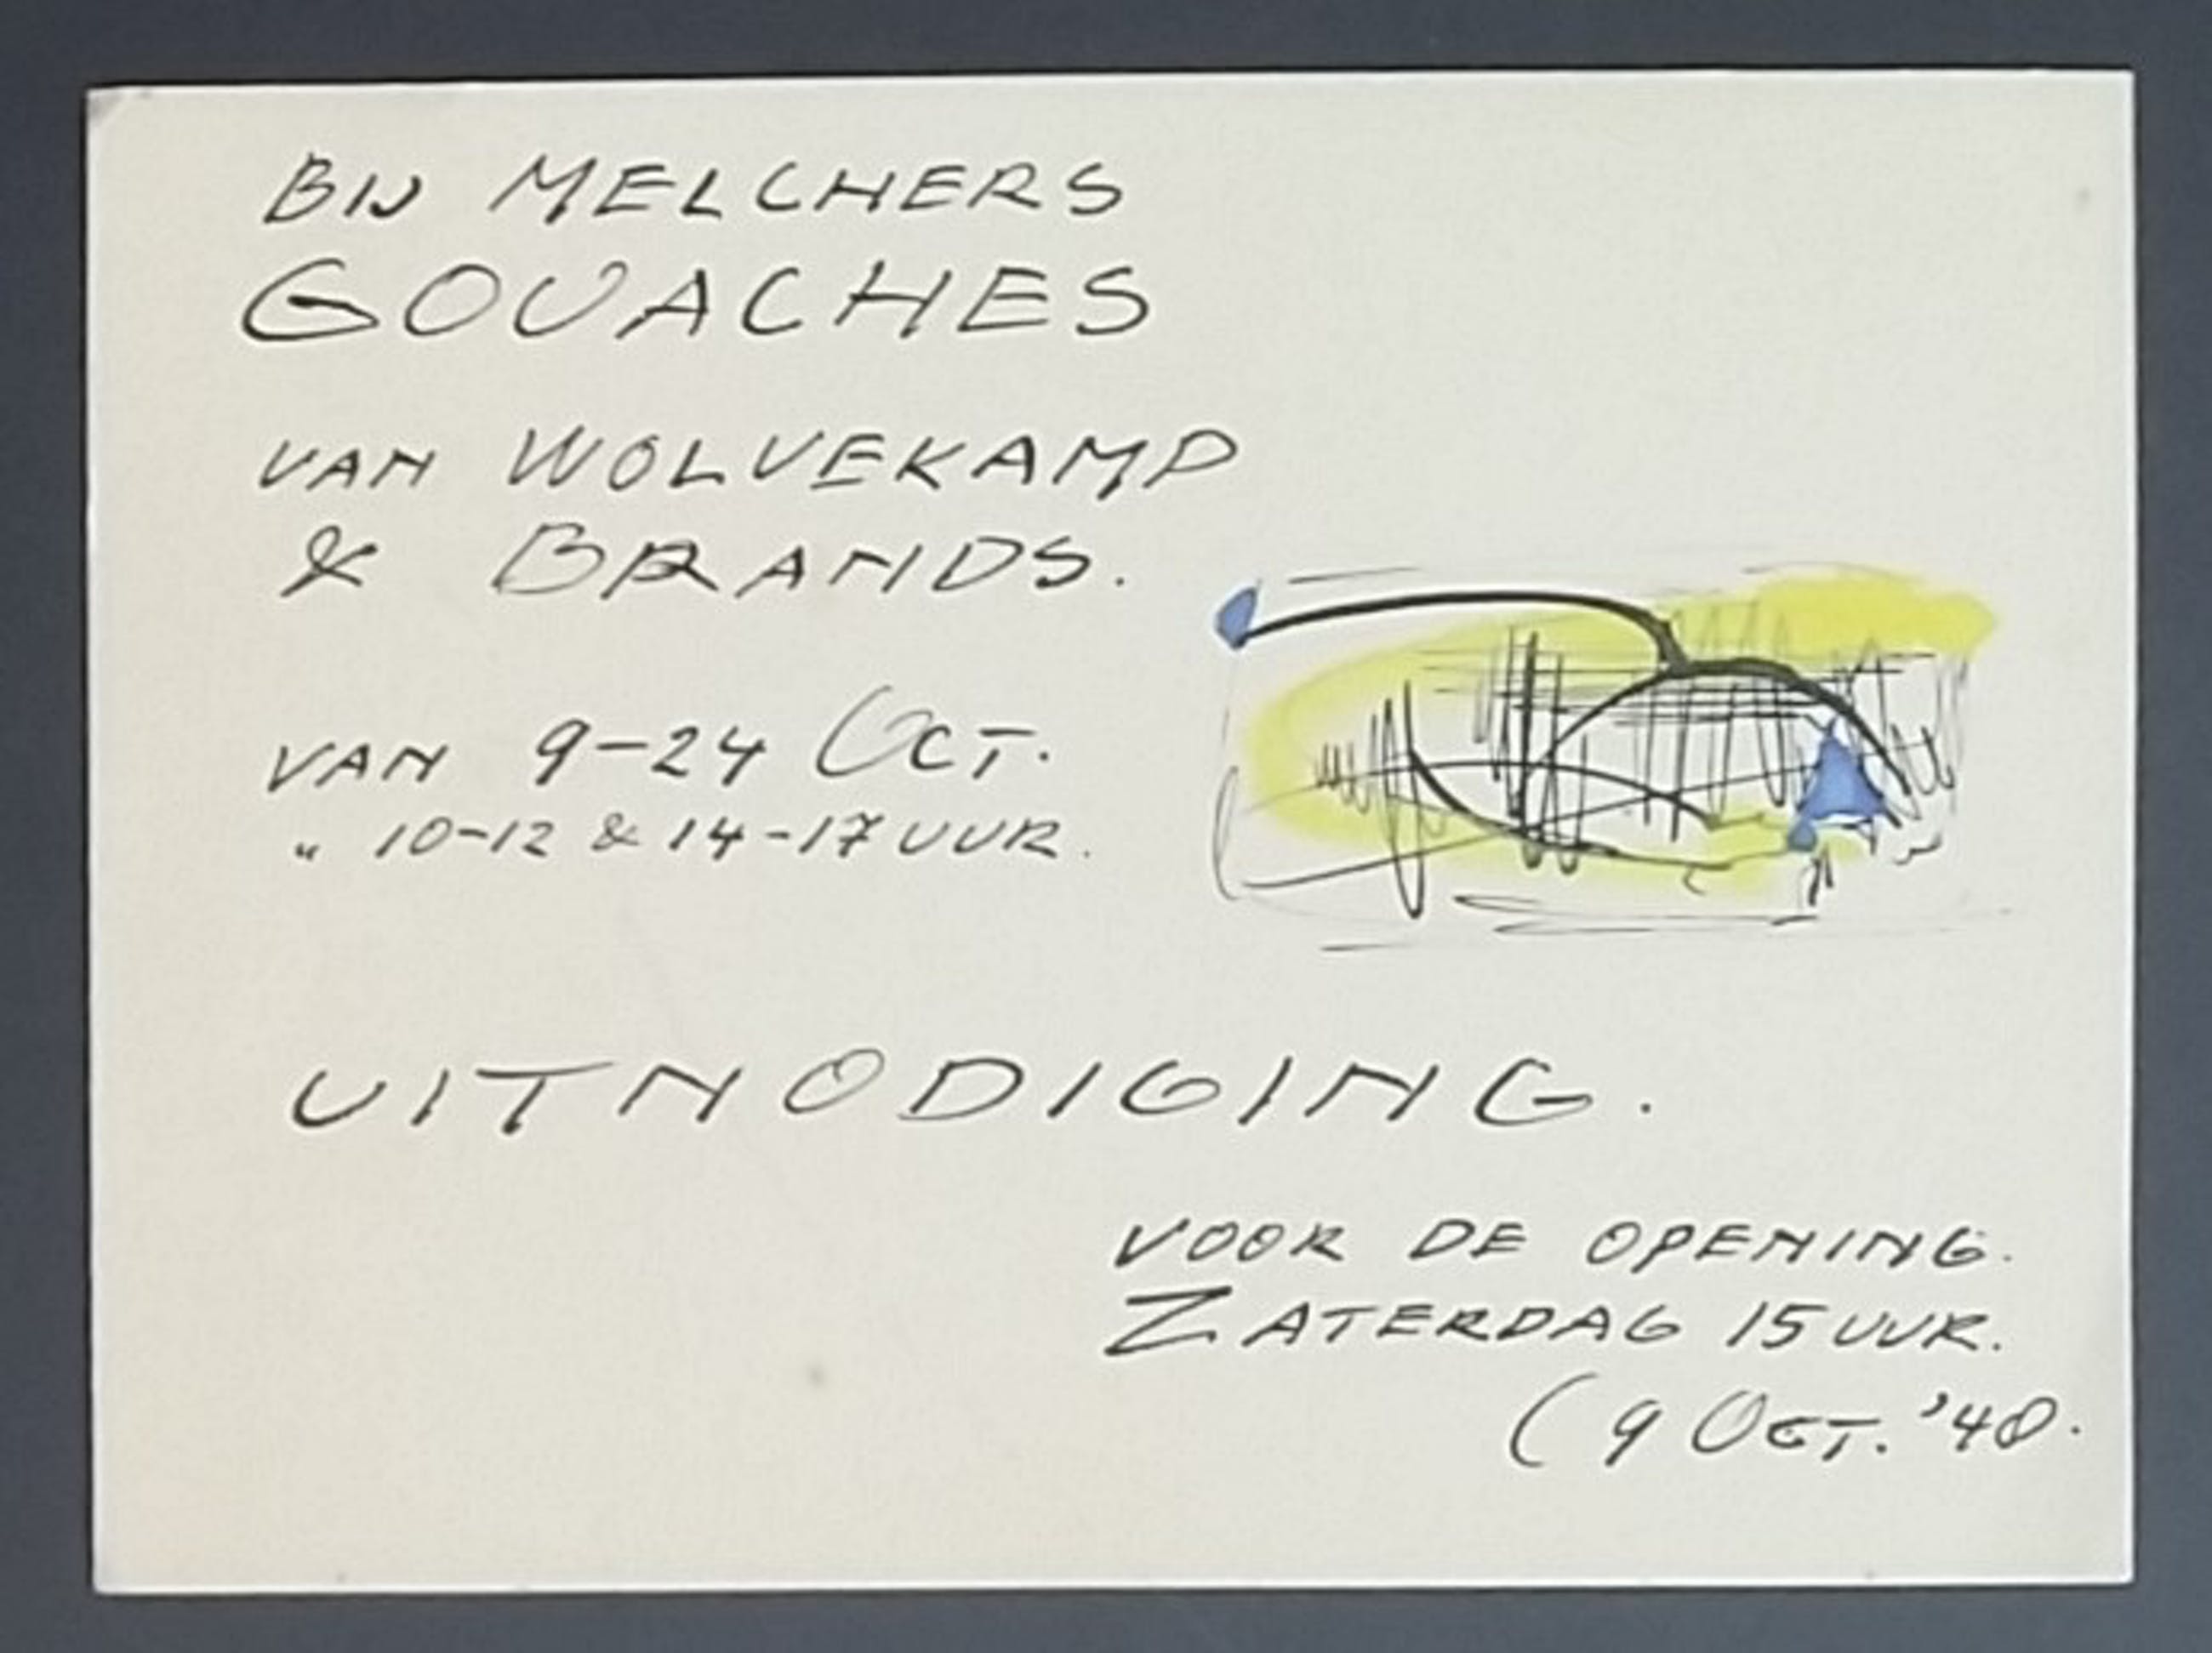 BIJ MELCHERS
GOUACHES
VAN WOLVEKAMP
& BRANDS.
VAN 9-24 OCT.
" 10-12 & 14-17 UUR.
UITNODIGING.
VOOR DE OPENING.
ZATERDAG 15 UUR.
(9 OCT. '48.